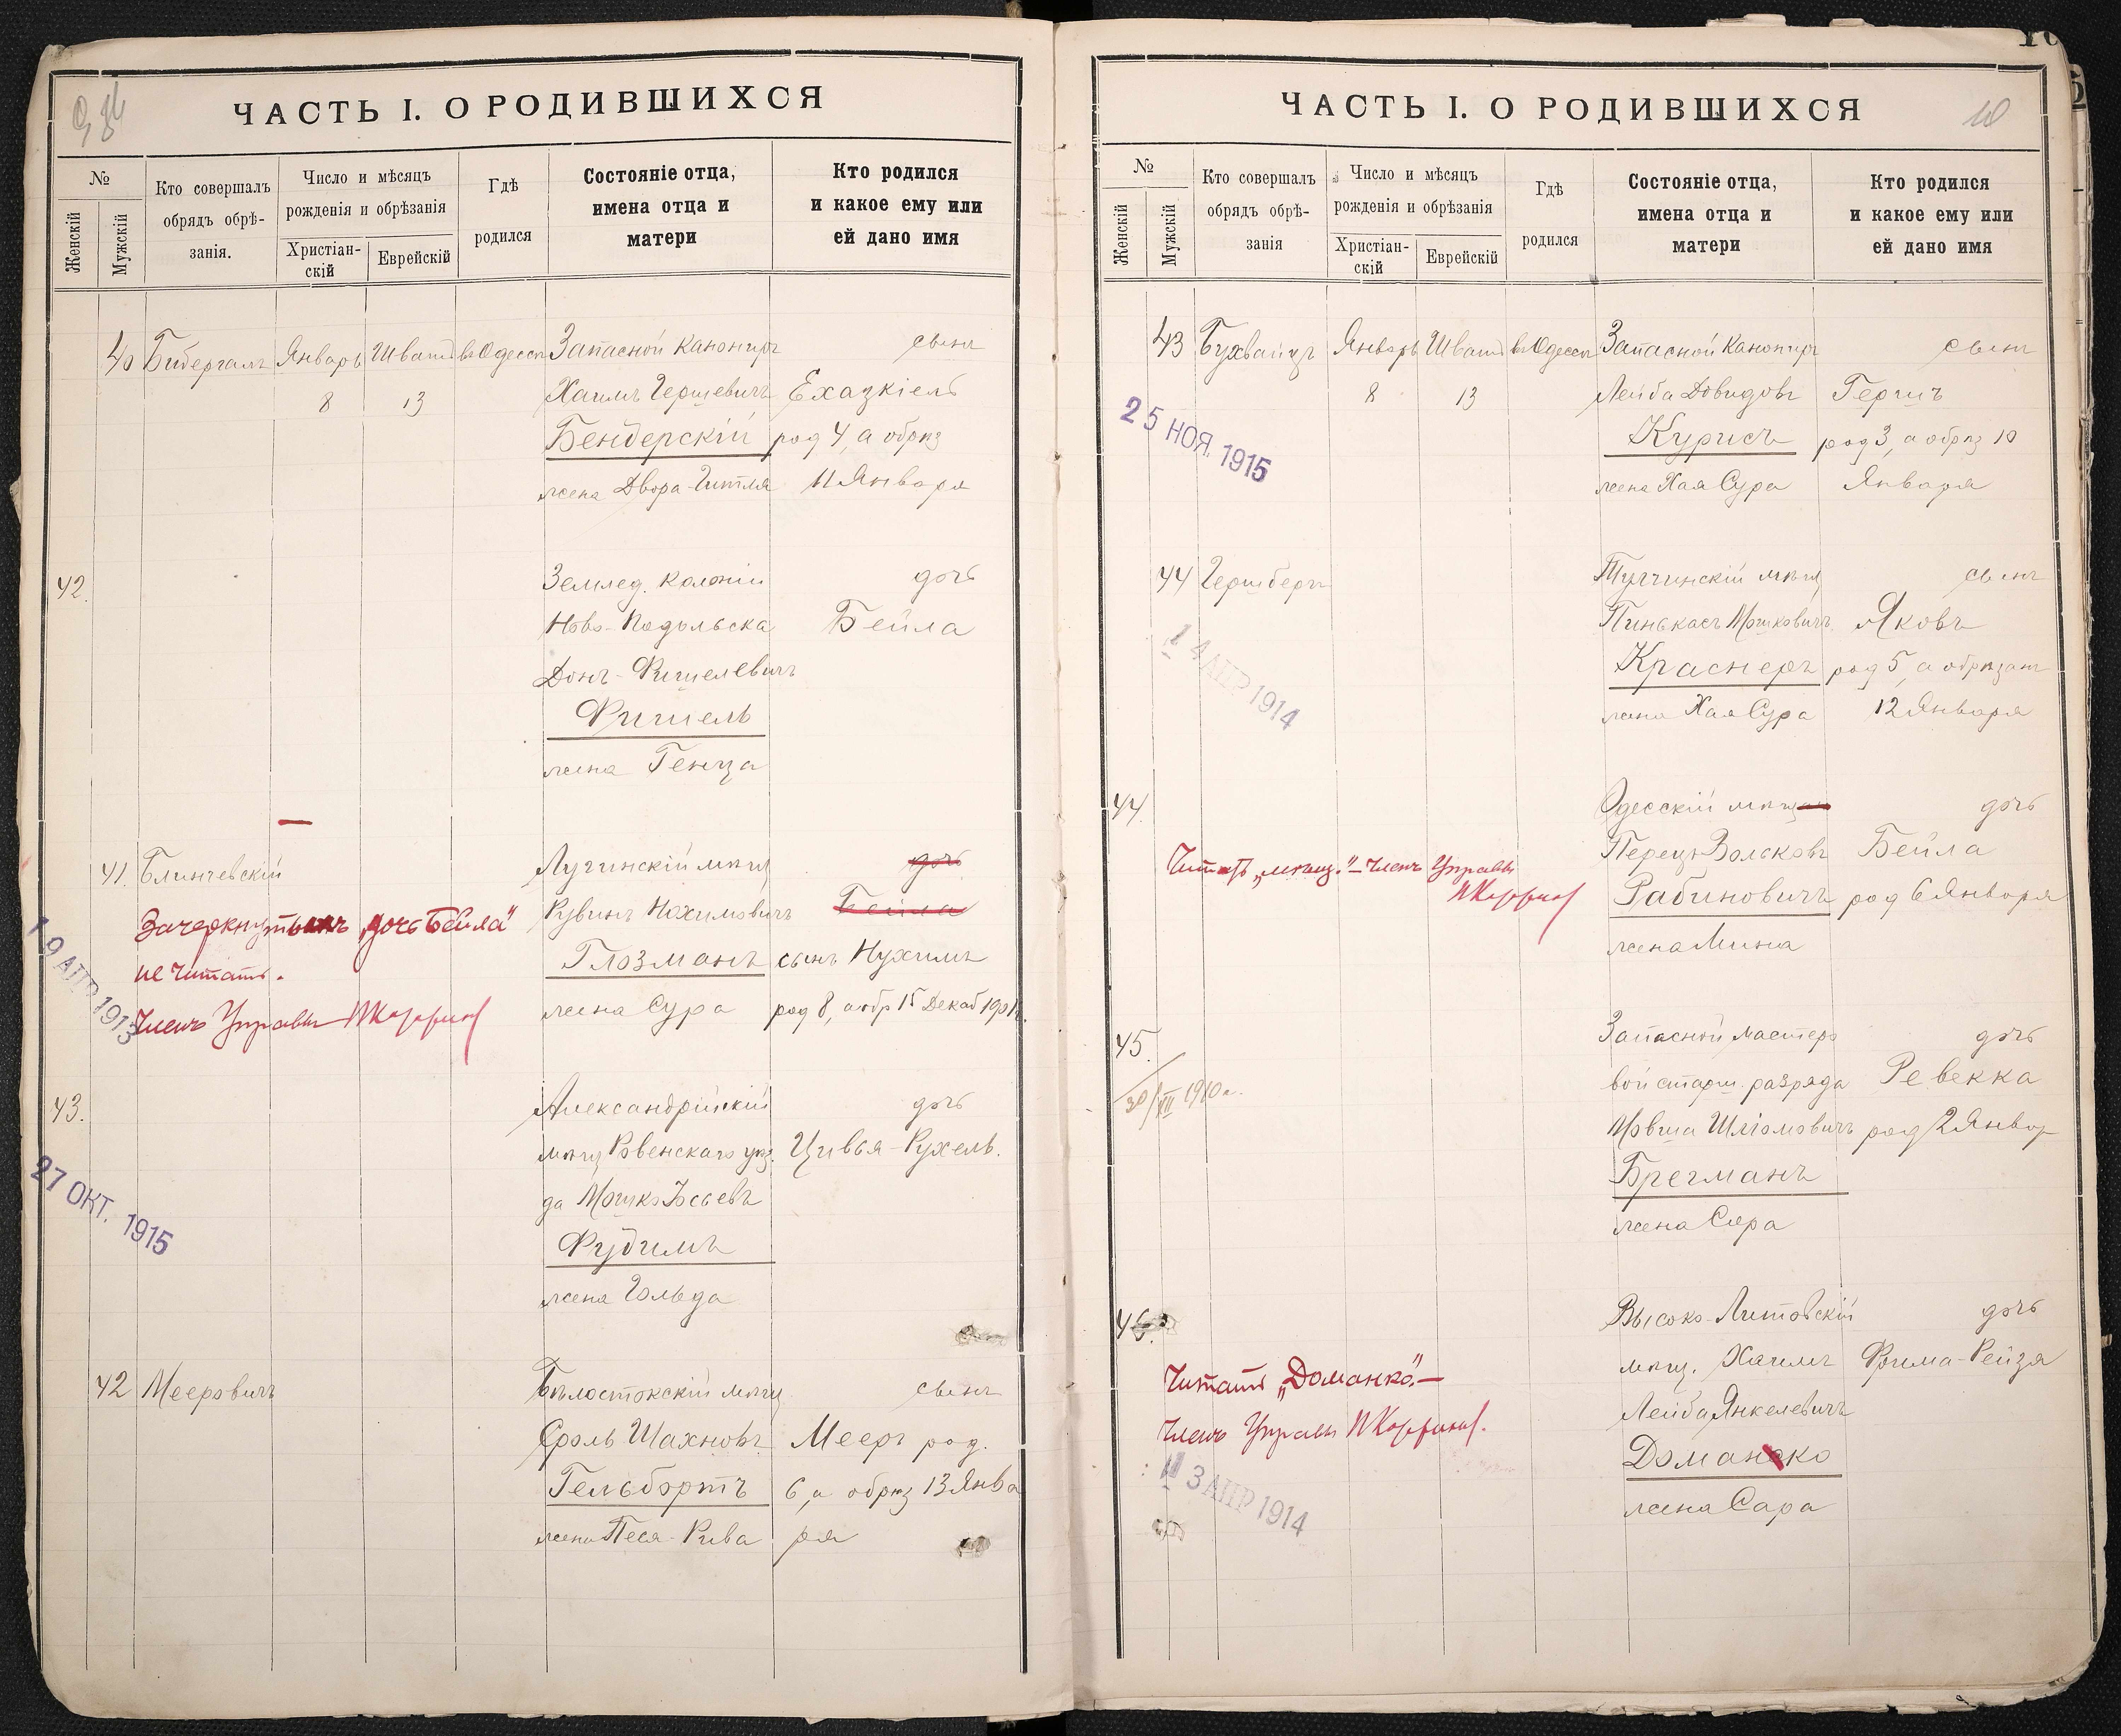 ЧАСТЬ I. О РОДИВШИХСЯ
№
Женскій
Мужскій
Кто совершалъ
обрядъ обрѣ-
занія.
Число и мѣсяцъ
рожденія и обрѣзанія
Христіан-
скій
Еврейскій
Гдѣ
родился
Состояніе отца,
имена отца и
матери
Кто родился
и какое ему или
ей дано имя
40 Бибергалъ Январь Шватъ въ Одессѣ Запасной Канониръ сынъ
8 13 Хаимъ Гершевичъ Ехазкіель
Бендерскій род 4, а обрѣз
жена Двора-Гитля 11 Января
42. Землед. Колоніи дочь
Ново-Подольска Бейла
Донъ-Фишелевичъ
Фишель
жена Генца
41. Блинчевскій Лугинскій мѣщ дочь
Рувинъ Нохимовичъ Бейла
Зачеркнутымъ „дочь Бейла"
не читать.
Глозманъ сынъ Нухимъ
Членъ Управы
жена Сура род 8, а обр 15 Декаб 1901г.
19 АПР 1913
43. Александрійскій дочь
мѣщ Ровенскаго уѣз Цивья-Рухель.
да Мошко Іосьевъ
Фудимъ
жена Гольда
27 ОКТ. 1915
42 Мееровичъ Бѣлостокскій мѣщ сынъ
Сроль Шахновъ Мееръ род.
Гельбортъ 6, а обрѣз 13 Янва
жена Песя-Рива ря
ЧАСТЬ I. О РОДИВШИХСЯ
10
№
Женскій
Мужскій
Кто совершалъ
обрядъ обрѣ-
занія
Число и мѣсяцъ
рожденія и обрѣзанія
Христіан-
скій
Еврейскій
Гдѣ
родился
Состояніе отца,
имена отца и
матери
Кто родился
и какое ему или
ей дано имя
43 Бухвайцъ Январь Шватъ въ Одессѣ Запасной Канониръ сынъ
8 13 Лейба Довидовъ Гершъ
Курисъ род 3, а обрѣз 10
жена Хая Сура Января
25 НОЯ. 1915
44 Гершбергъ Тульчинскій мѣщ сынъ
Пинькасъ Мошковичъ Яковъ
Краснеръ род 5, а обрѣзанъ
жена Хая Сура 12 Января
14 АПР 1914
44. Одесскій мѣщ дочь
Перецъ Волковъ Бейла
Читать „мѣщ." – Членъ Управы
Рабиновичъ род 6 Января
жена Мина
45. Запасной мастеро дочь
вой старш. разряда Ревекка
30/XII 1910 г.
Мовша Шліомовичъ род 2 Январ
Брегманъ
жена Сура
46. Высоко-Литовскій дочь
мѣщ. Хаимъ Фрима-Рейзя
Лейба Янкелевичъ
Читать „Доманко". –
Членъ Управы
Доманско
жена Сара
3 АПР 1914